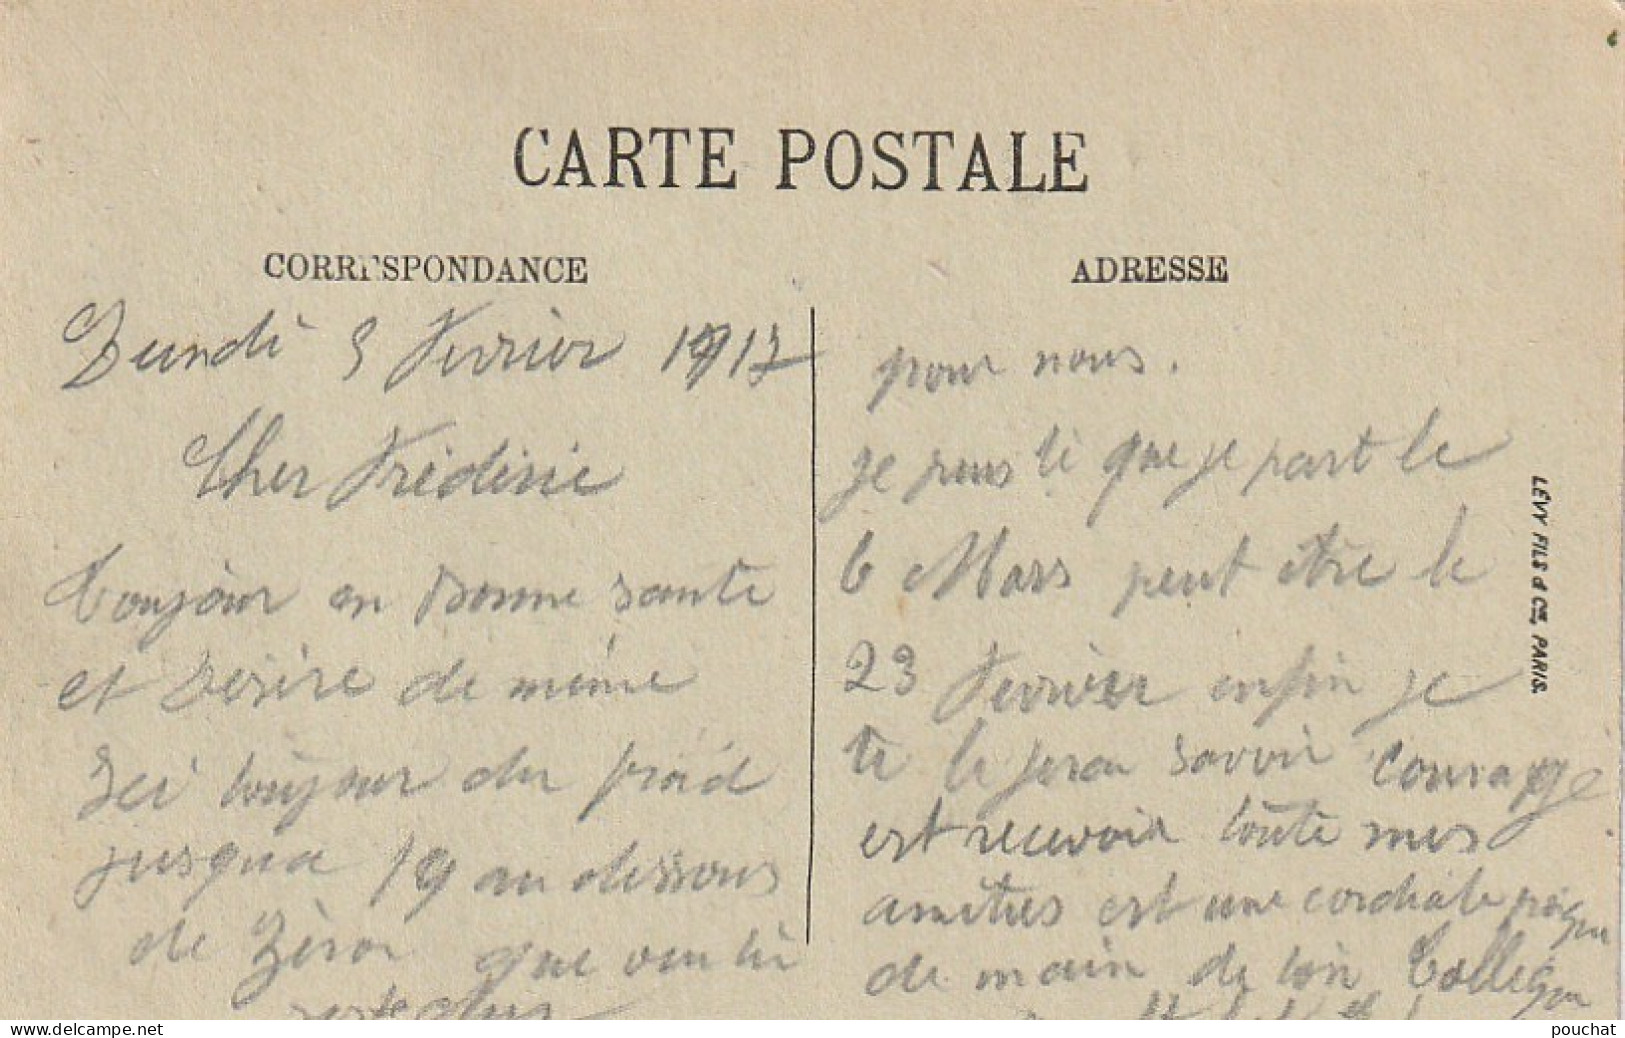 CARTE POSTALE
CORRESPONDANCE
Lundi 5 Fevrier 1917
Cher
Toujour en Bonne sante
et desire de meme
Ici toujour du froid
jusqua 19 au dessous
de Zéro que veu tu
ADRESSE
pour nous.
je pens ti que je part le
6 Mars peut être le
23 Fevrier enfin je
te le ferai savoir courage
est recevoir toute mes
amities est une cordiale poignee
de main de ton Collegue
LÉVY FILS & Cie, PARIS.
pouchat